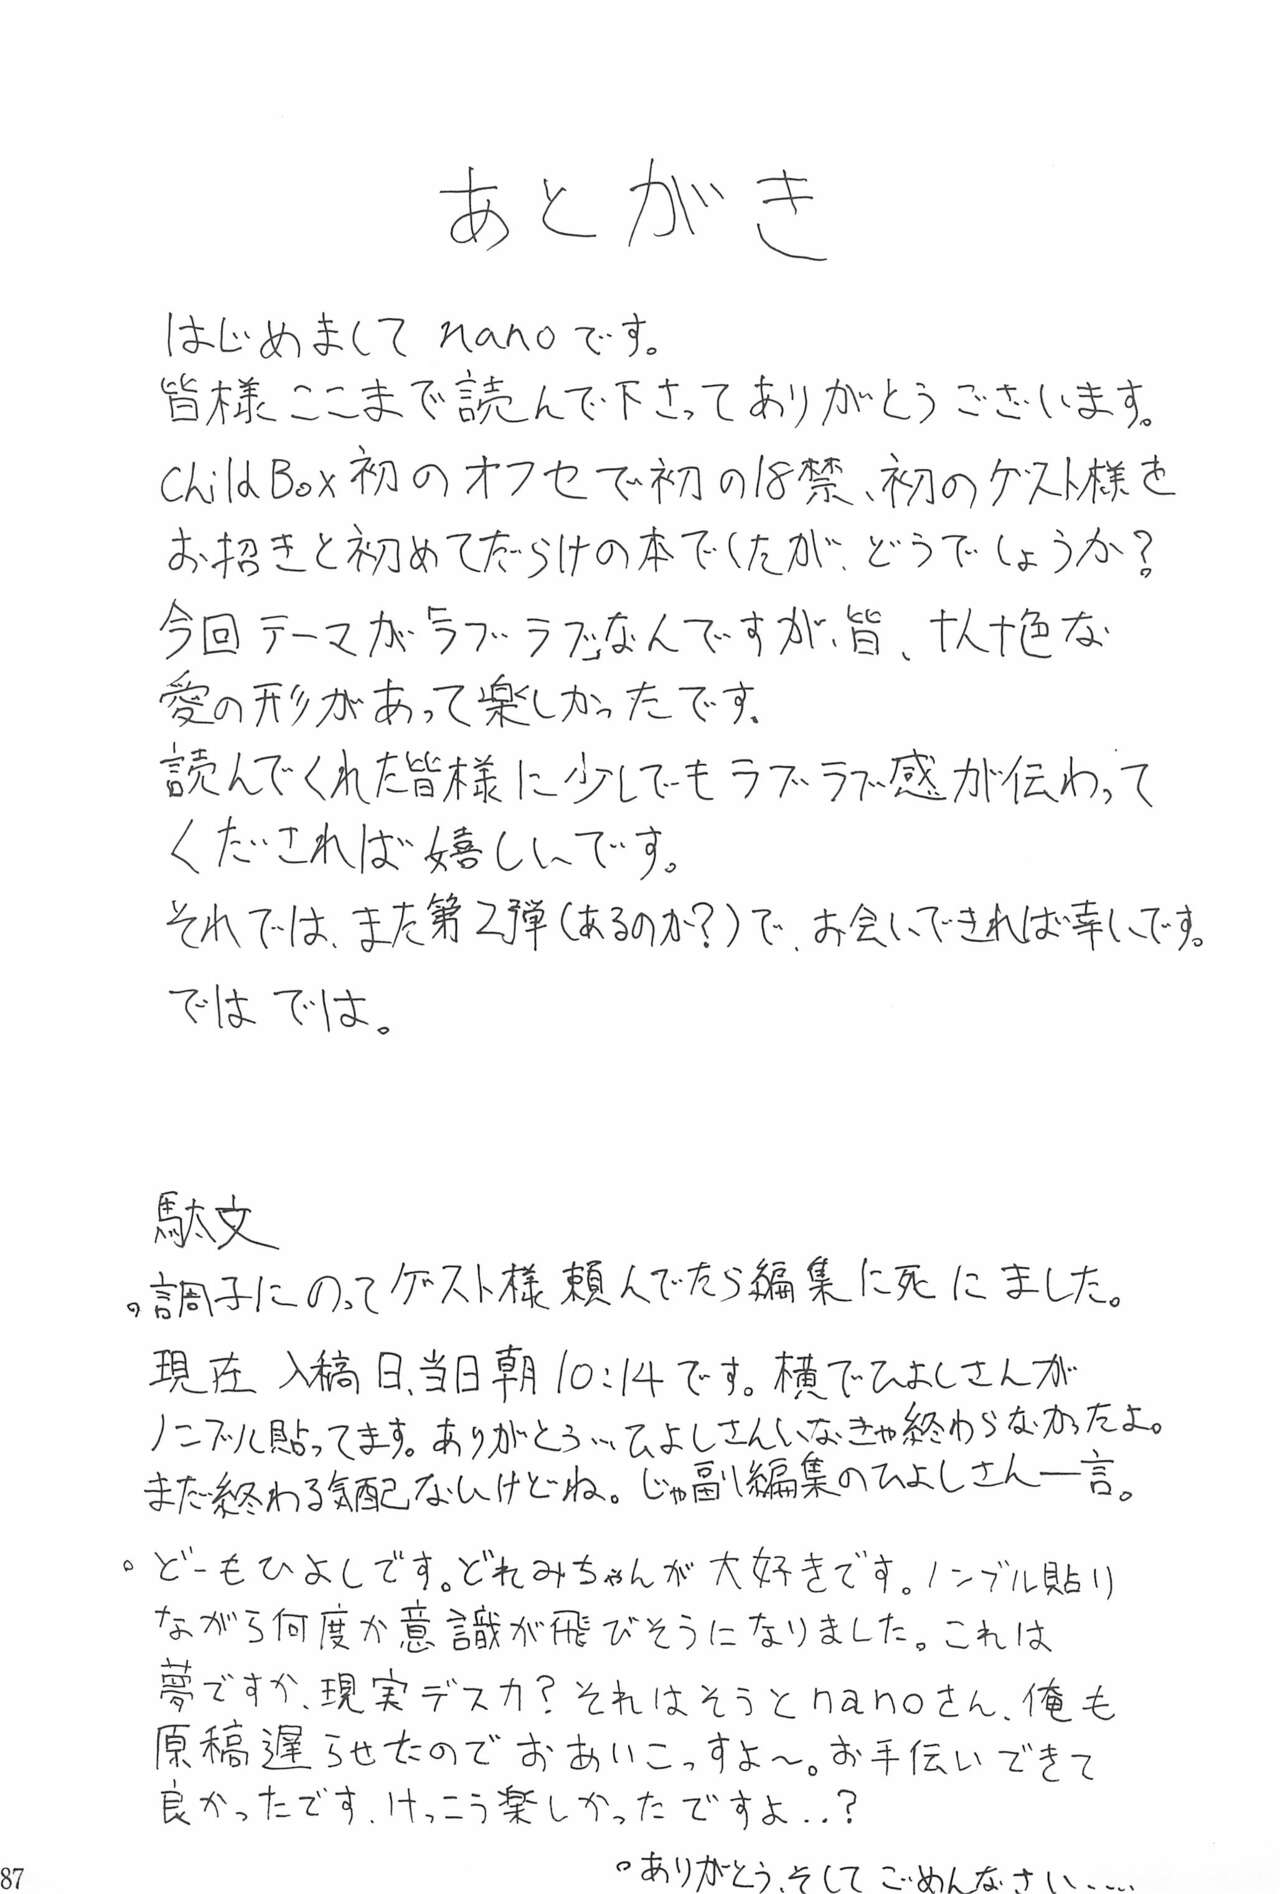 あとがき
はじめまして nanoです。
皆様ここまで読んで下さってありがとうございます。
ChildBox初のオフセで初の18禁、初のゲスト様を
お招きと初めてだらけの本でしたが、どうでしょうか?
今回テーマが「ラブラブ」なんですが、皆、十人十色な
愛の形があって楽しかったです。
読んでくれた皆様に少しでもラブラブ感が伝わって
くだされば嬉しいです。
それでは、また第2弾(あるのか?)で、お会いできれば幸いです。
ではでは。
駄文
。調子にのってゲスト様頼んでたら編集に死にました。
現在 入稿日、当日朝10:14です。横でひよしさんが
ノンブル貼ってます。ありがとう…ひよしさんいなきゃ終わらなかったよ。
まだ終わる気配ないけどね。じゃ副編集のひよしさん一言。
。どーもひよしです。どれみちゃんが大好きです。ノンブル貼り
ながら何度か意識が飛びそうになりました。これは
夢ですか、現実デスカ?それはそうとnanoさん、俺も
原稿遅らせたのでおあいこっすよ～。お手伝いできて
良かったです、けっこう楽しかったですよ..?
。ありがとう、そしてごめんなさい.....
87